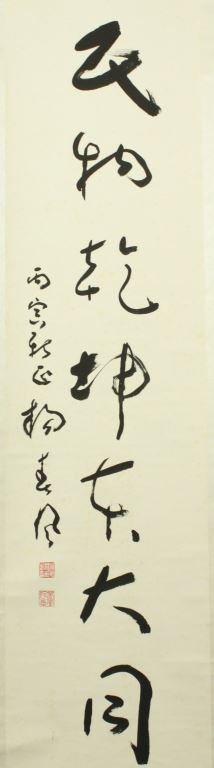 民物乾坤大同
丙寅新正楊春風